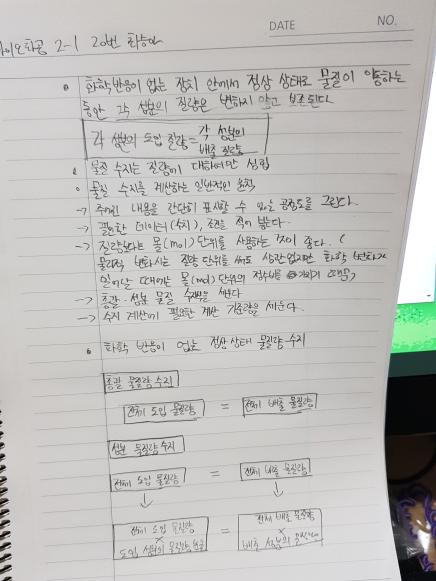 DATE NO.
바이오화공 2-1 20번
• 화학반응이 없는 장치 안에서 정상 상태로 물질이 이동하는
동안 각 성분의 질량은 변하지 않고 보존된다.
각 성분의 도입 질량 = 각 성분의 배출 질량
• 물질 수지는 질량에 대하여만 성립
• 물질 수지를 계산하는 일반적인 원칙
→ 주어진 내용을 간단히 표시할 수 있는 공정도를 그린다.
→ 필요한 데이터(수치), 조건을 적어 넣는다.
→ 질량보다는 몰(mol)단위를 사용하는 것이 좋다. (
물리적 변화시는 질량 단위를 써도 상관없지만 화학 변화가
일어날 때에는 몰(mol)단위의 정수비를 때문)
→ 총괄·성분 물질 수지식을 쓴다.
→ 수지 계산에 필요한 계산 기준량을 세운다.
• 화학 반응이 없는 정상 상태 물질량 수지
총괄 물질량 수지
전체 도입 물질량 = 전체 배출 물질량
성분 물질량 수지
전체 도입 물질량 = 전체 배출 물질량
↓ ↓
전체 도입 물질량 = 전체 배출 물질량
× ×
도입 성분의 물질량 배출 성분의